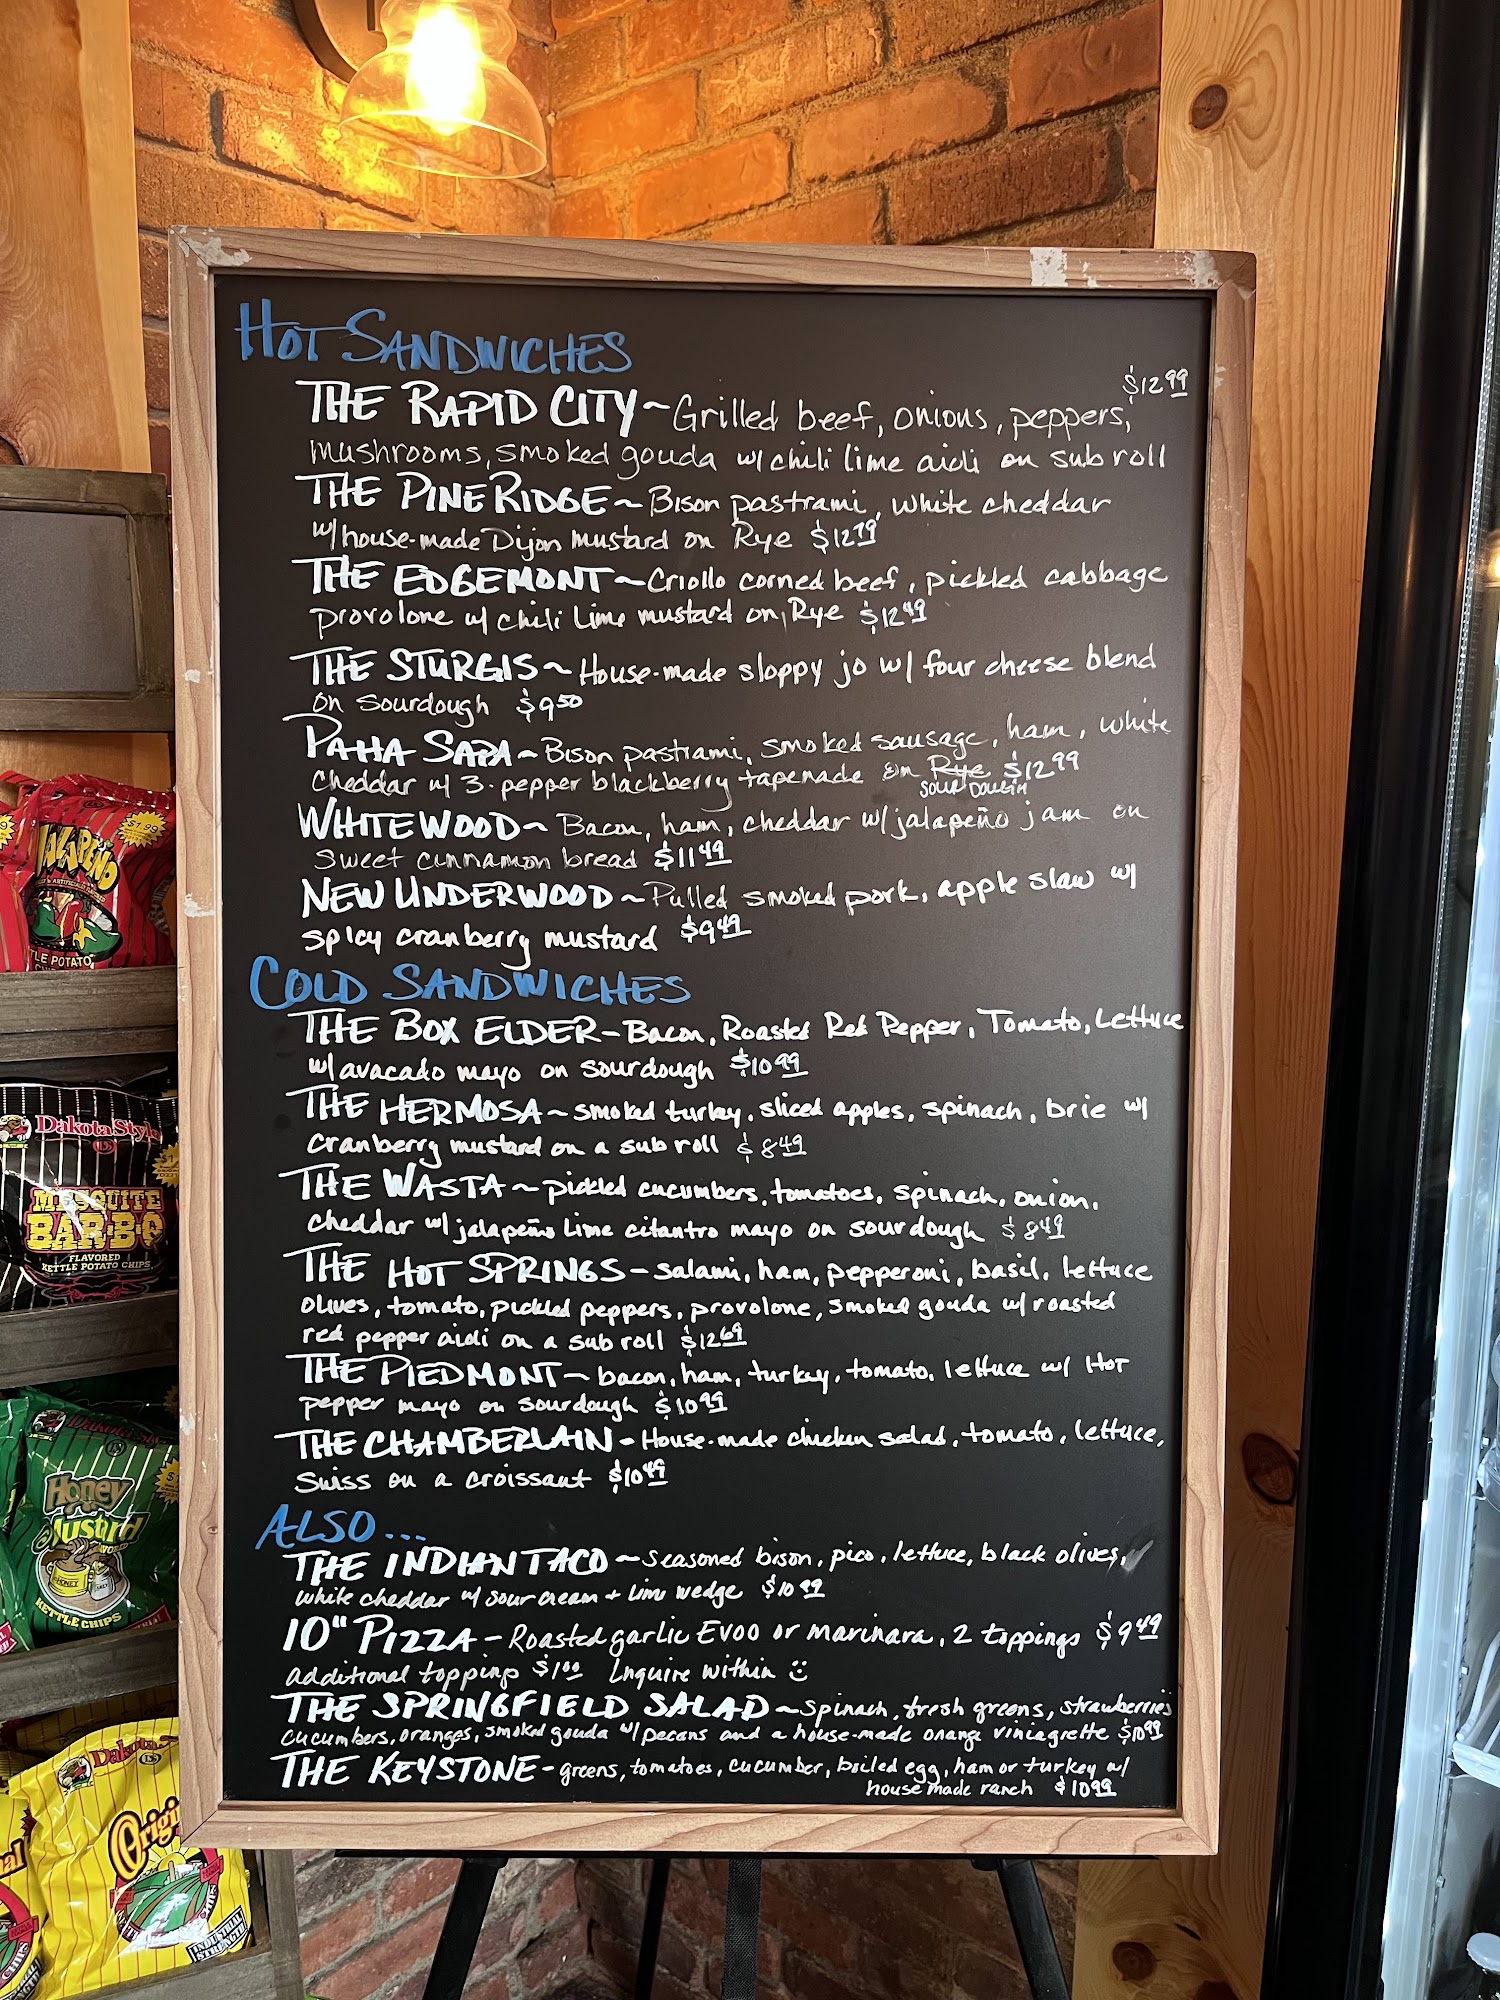 HOT SANDWICHES
$12.99
THE RAPID CITY ~ Grilled beef, onions, peppers,
mushrooms, smoked gouda w/ chili lime aioli on sub roll
THE PINE RIDGE ~ Bison pastrami, white cheddar
w/ house-made Dijon mustard on Rye $12.79
THE EDGEMONT ~ Criollo corned beef, pickled cabbage
provolone w/ chili lime mustard on Rye $12.49
THE STURGIS ~ House-made sloppy jo w/ four cheese blend
on sourdough $9.50
PAHA SAPA ~ Bison pastrami, smoked sausage, ham, white
cheddar w/ 3-pepper blackberry tapenade on Rye $12.99
SOURDOUGH
WHITEWOOD ~ Bacon, ham, cheddar w/ jalapeño jam on
sweet cinnamon bread $11.49
NEW UNDERWOOD ~ Pulled smoked pork, apple slaw w/
spicy cranberry mustard $9.49
COLD SANDWICHES
THE BOX ELDER - Bacon, Roasted Red Pepper, Tomato, Lettuce
w/ avacado mayo on sourdough $10.99
THE HERMOSA ~ smoked turkey, sliced apples, spinach, brie w/
cranberry mustard on a sub roll $8.49
THE WASTA ~ pickled cucumbers, tomatoes, spinach, onion,
cheddar w/ jalapeño lime cilantro mayo on sourdough $8.49
THE HOT SPRINGS - salami, ham, pepperoni, basil, lettuce
olives, tomato, pickled peppers, provolone, smoked gouda w/ roasted
red pepper aioli on a sub roll $12.69
THE PIEDMONT ~ bacon, ham, turkey, tomato, lettuce w/ HOT
pepper mayo on sourdough $10.99
THE CHAMBERLAIN - House-made chicken salad, tomato, lettuce,
Swiss on a croissant $10.49
ALSO...
THE INDIAN TACO ~ seasoned bison, pico, lettuce, black olives,
white cheddar w/ sour cream + lime wedge $10.99
10" PIZZA - Roasted garlic EVOO or marinara, 2 toppings $9.49
additional topping $1.00 Inquire within
THE SPRINGFIELD SALAD ~ spinach, fresh greens, strawberries
cucumbers, oranges, smoked gouda w/ pecans and a house-made orange viniagrette $10.99
THE KEYSTONE - greens, tomatoes, cucumber, boiled egg, ham or turkey w/
house made ranch $10.99
JALAPEÑO
$1.99
Dakota Style
MESQUITE
BAR-B-Q
FLAVORED
KETTLE POTATO CHIPS
Dakota Style
Honey
Mustard
KETTLE CHIPS
Dakota
Origi
INDUSTRIAL
STRENGTH